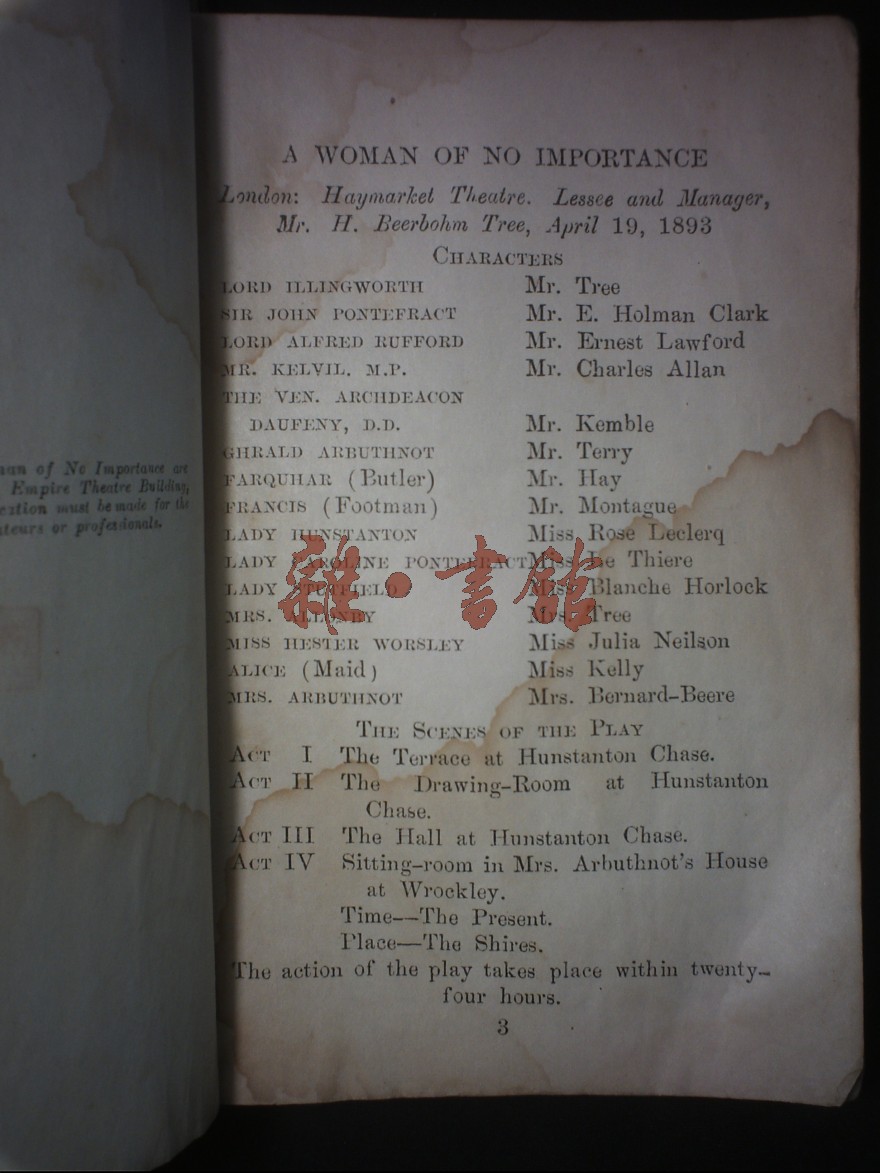 man of No Importance are
Empire Theatre Building,
must be made for the
or professionals.
A WOMAN OF NO IMPORTANCE
London: Haymarket Theatre. Lessee and Manager,
Mr. H. Beerbohm Tree, April 19, 1893
CHARACTERS
LORD ILLINGWORTH Mr. Tree
SIR JOHN PONTEFRACT Mr. E. Holman Clark
LORD ALFRED RUFFORD Mr. Ernest Lawford
MR. KELVIL. M.P. Mr. Charles Allan
THE VEN. ARCHDEACON
DAUFENY, D.D. Mr. Kemble
GHRALD ARBUTHNOT Mr. Terry
FARQUHAR (Butler) Mr. Hay
FRANCIS (Footman) Mr. Montague
LADY HUNSTANTON Miss Rose Leclerq
LADY CAROLINE PONTEFRACT Miss Le Thiere
LADY STUTFIELD Miss Blanche Horlock
MRS. ALLONBY Mrs. Tree
MISS HESTER WORSLEY Miss Julia Neilson
ALICE (Maid) Miss Kelly
MRS. ARBUTHNOT Mrs. Bernard-Beere
雜·書館
THE SCENES OF THE PLAY
ACT I The Terrace at Hunstanton Chase.
ACT II The Drawing-Room at Hunstanton
Chase.
ACT III The Hall at Hunstanton Chase.
ACT IV Sitting-room in Mrs. Arbuthnot's House
at Wrockley.
Time—The Present.
Place—The Shires.
The action of the play takes place within twenty-
four hours.
3